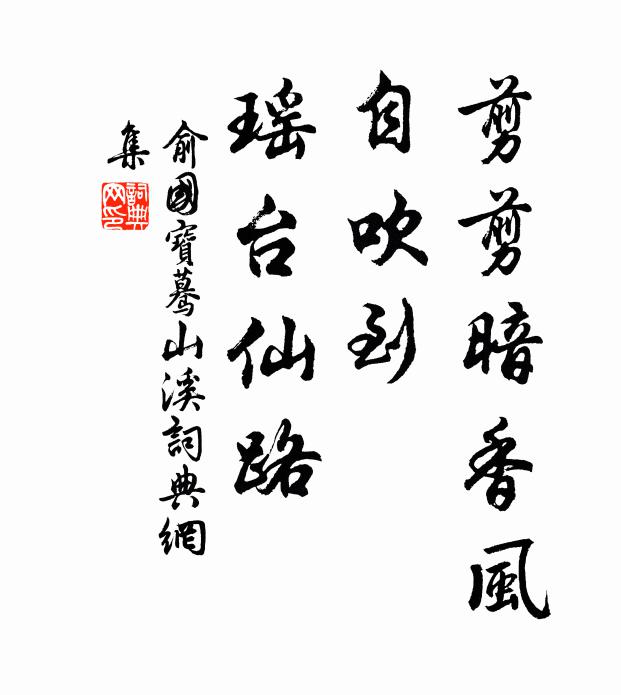 剪剪暗香風
自吹到
瑶台仙路
俞國寶驀山溪詞典網
集
詞典
网印